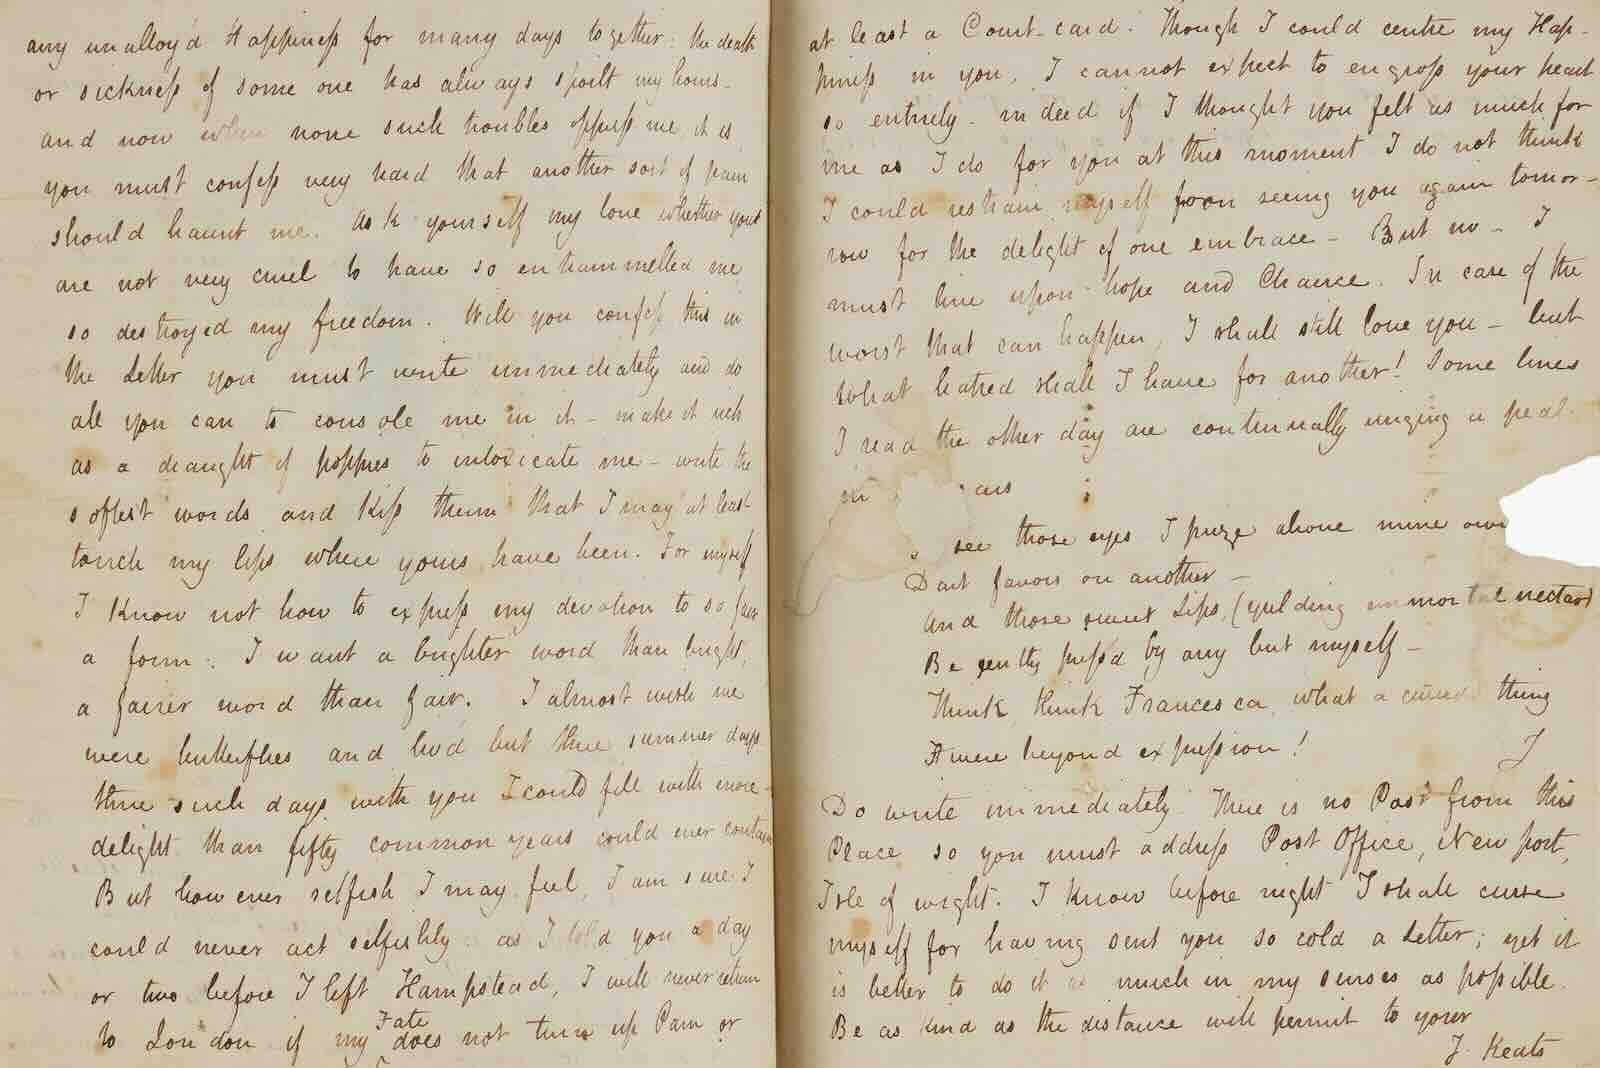 any unalloy'd Happiness for many days together: the death
or sickness of some one has always spoilt my hours-
and now when none such troubles oppress me, it is
you must confess very hard that another sort of pain
should haunt me. Ask yourself my love whether you
are not very cruel to have so entrammelled me,
so destroyed my freedom. Will you confess this in
the Letter you must write immediately and do
all you can to console me in it - make it rich
as a draught of poppies to intoxicate me - write the
softest words and kiss them that I may at least
touch my lips where yours have been. For myself
I know not how to express my devotion to so fair
a form: I want a brighter word than bright,
a fairer word than fair. I almost wish we
were butterflies and liv'd but three summer days
three such days with you I could fill with more
delight than fifty common years could ever contain
But however selfish I may feel, I am sure I
could never act selfishly: as I told you a day
or two before I left Hampstead, I will never return
to London if my Fate does not turn up Pam or
at least a Court-card. Though I could centre my Hap-
piness in you, I cannot expect to engross your heart
so entirely - indeed if I thought you felt as much for
me as I do for you at this moment I do not think
I could restrain myself from seeing you again tomor-
row for the delight of one embrace - But no - I
must live upon hope and Chance. In case of the
worst that can happen, I shall still love you - but
what hatred shall I have for another! Some lines
I read the other day are continually ringing a peal
in ears
see those eyes I prize above mine own
Dart favors on another -
And those sweet Lips, (yielding immortal nectar)
Be gently press'd by any but myself -
Think, think Francesca, what a cursed thing
It were beyond expression! J
Do write immediately. There is no Post from this
Place so you must address Post Office, Newport,
Isle of wight. I know before night I shall curse
myself for having sent you so cold a Letter; yet it
is better to do it as much in my senses as possible.
Be as kind as the distance will permit to your
J. Keats